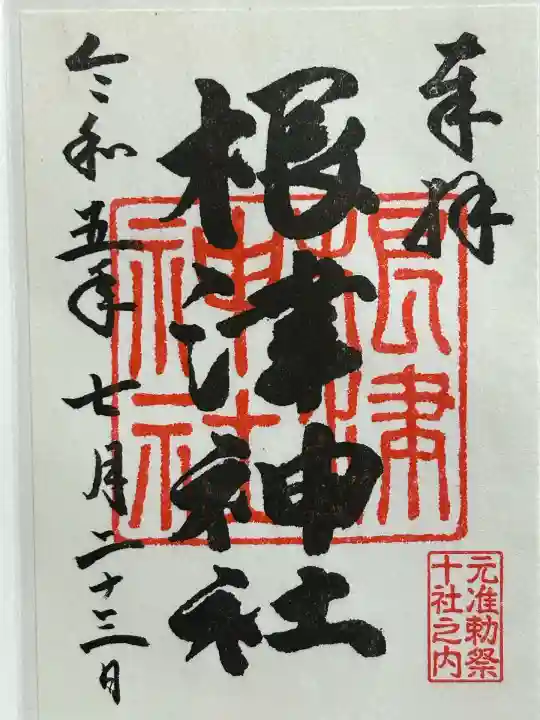 奉拝
根津神社
根津神社
元准勅祭
十社之内
令和五年七月二十三日